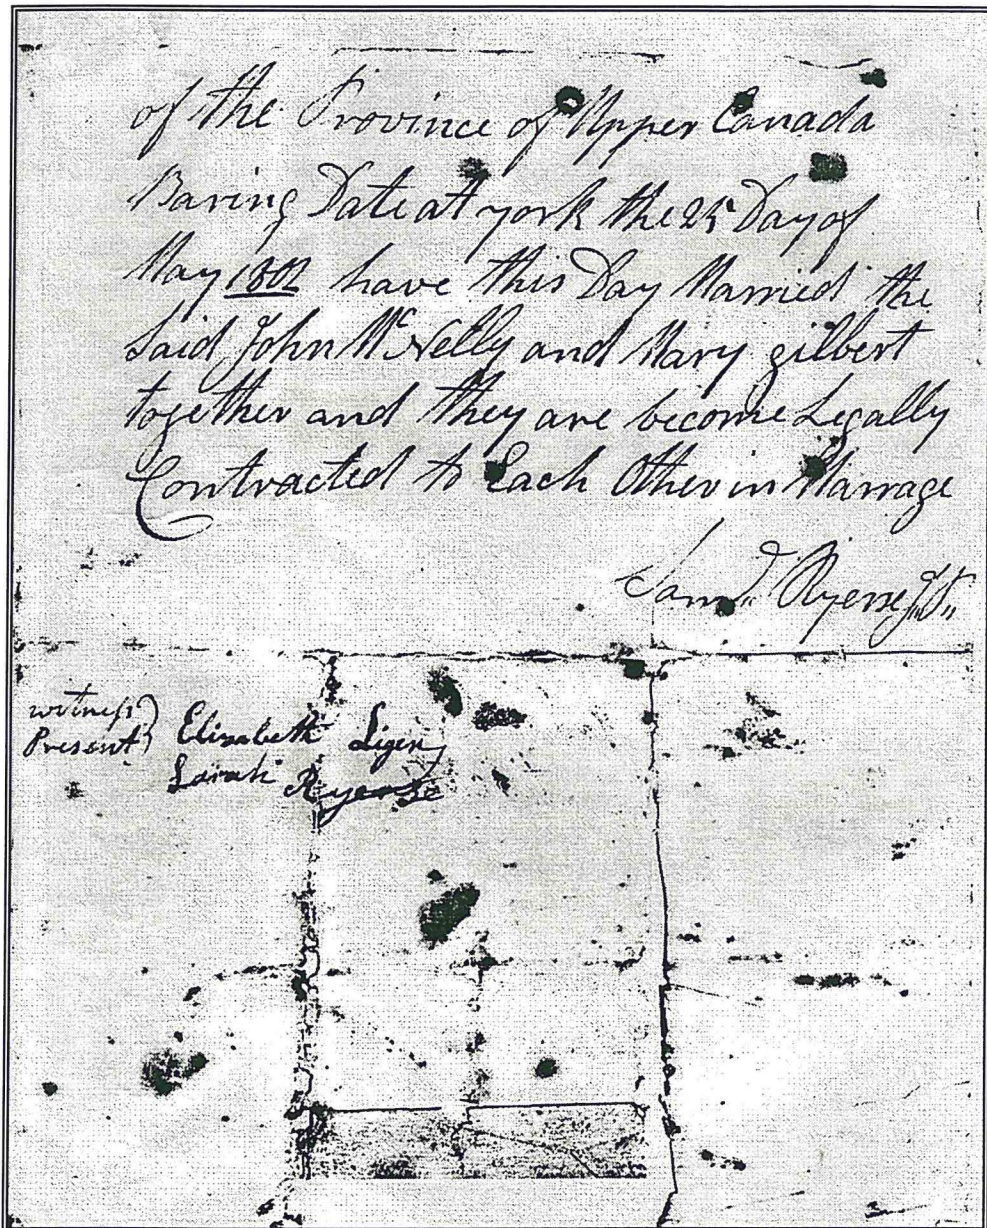 of the Province of Upper Canada
Baring Date at york the 25 Day of
May 1802 have this Day Married the
Said John Mc Nelly and Mary gilbert
together and they are become Legally
Contracted to Each Other in Marrage
Saml,, Ryerse J,,P,,
witness
Present
Elizabeth
Sarah Ryerse